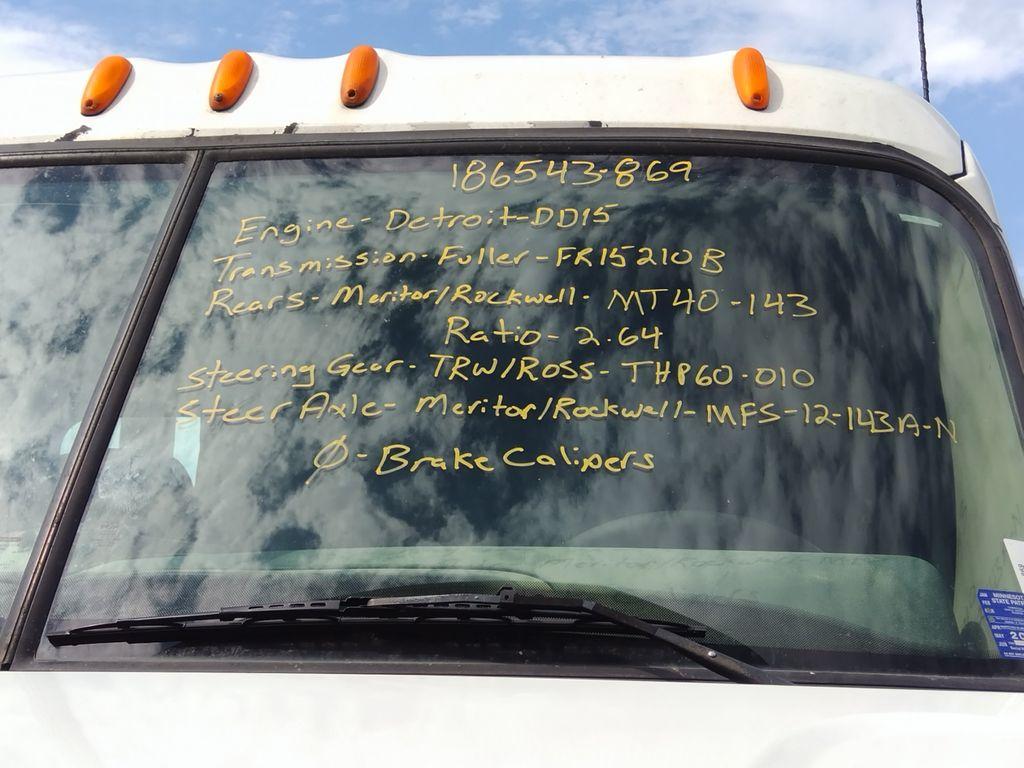 186543-869
Engine - Detroit-DD15
Transmission - Fuller - FR15210B
Rears - Meritor/Rockwell - MT40-143
Ratio - 2.64
Steering Gear - TRW/ROSS - THP60-010
Steer Axle - Meritor/Rockwell - MFS-12-143A-N
Ø - Brake Calipers
MINNESOTA
STATE PAT
JAN
FEB
APR
MAY
JUN
20